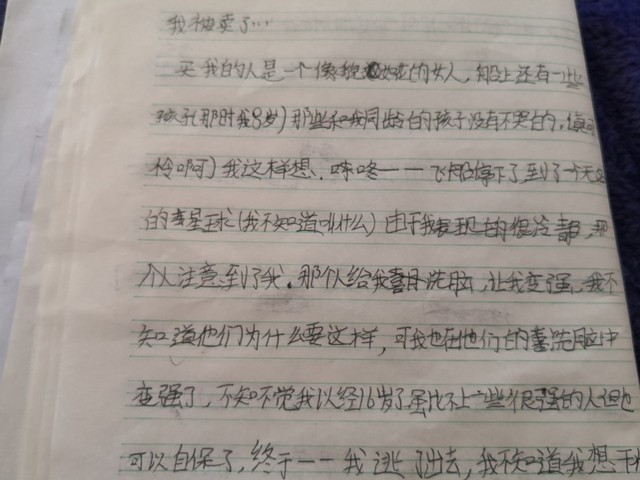 我被卖了…
买我的人是一个像貌的女人，船上还有一些
孩子(那时我8岁)那些和我同龄的孩子没有不哭的，真可
怜啊)我这样想．咔咚——飞船停下了到了一个
的星球(我不知道叫什么)由于我表现的很冷静，那
个人注意到了我．那个人给我洗脑，让我变强，我不
知道他们为什么要这样，可我也在他们的洗脑中
变强了，不知不觉我以经16岁了虽比不上一些很强的人但也
可以自保了，终于——我逃了出去，我不知道我想干